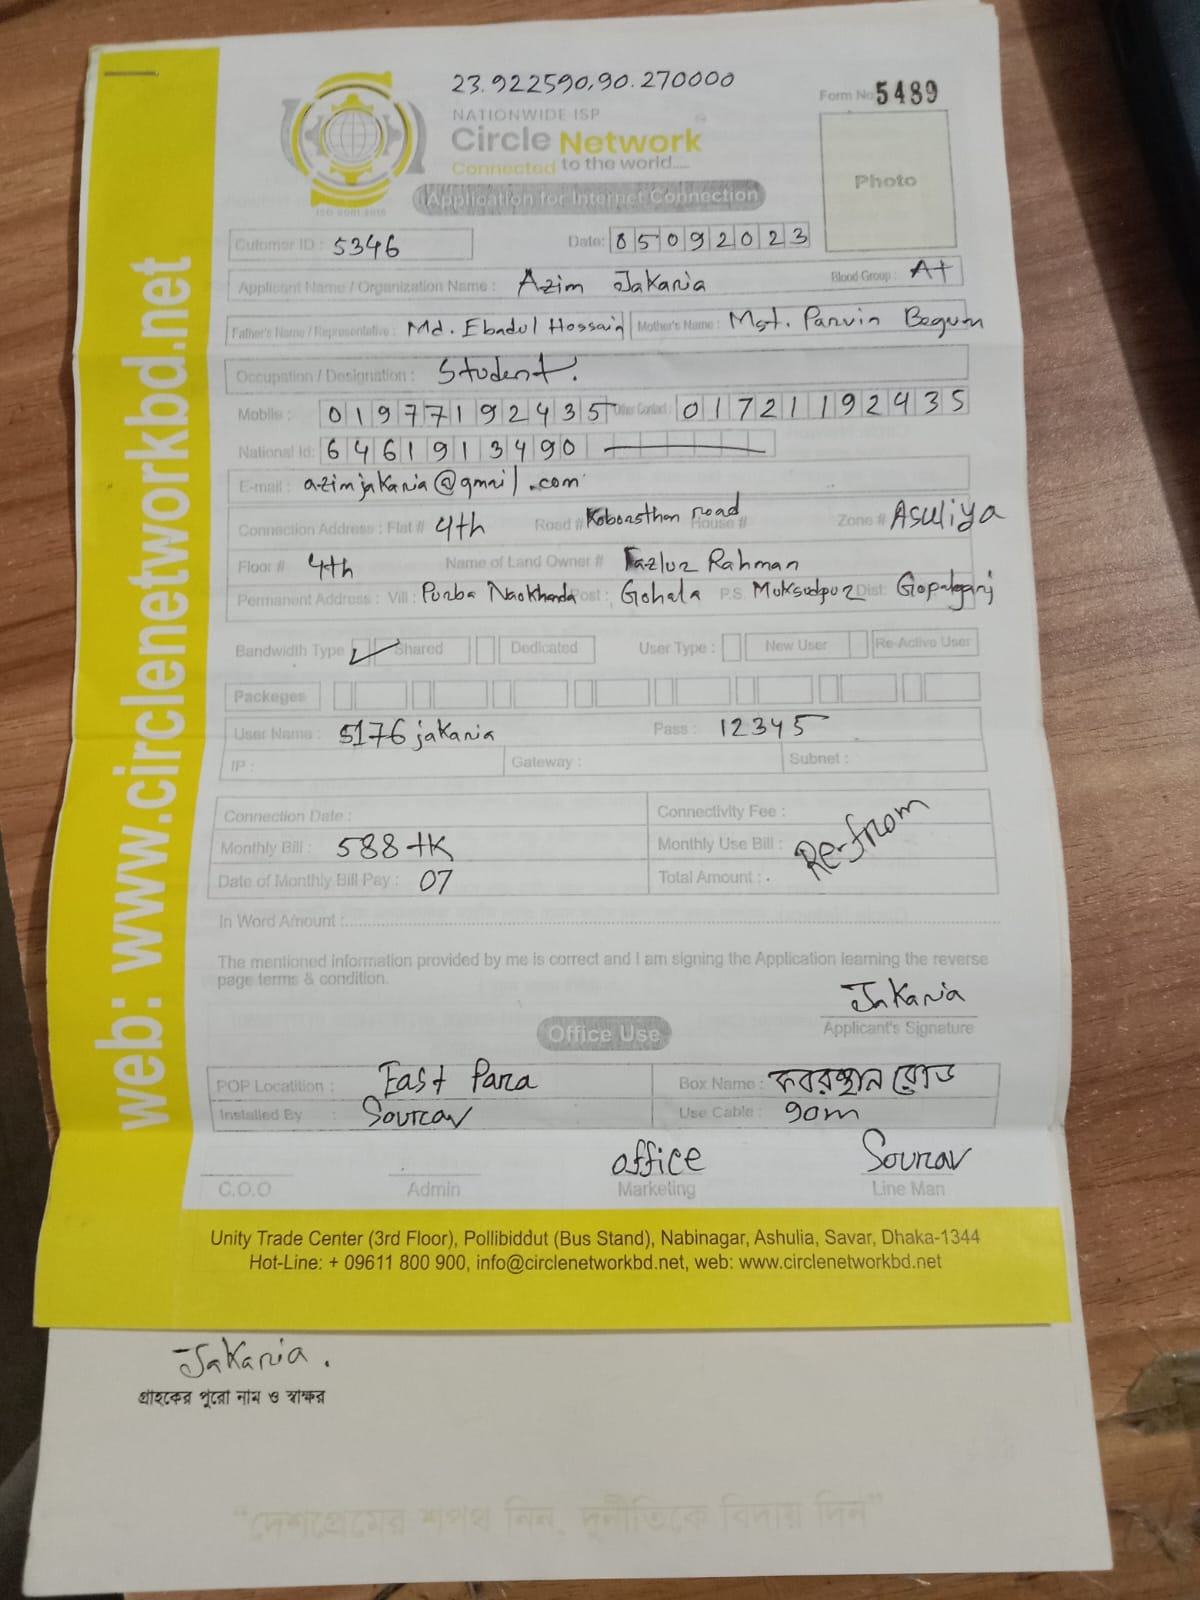 23.922590,90.270000
Form No 5489
NATIONWIDE ISP
Circle Network
Connected to the world....
ISO 9001:2015
Application for Internet Connection
Photo
Cutomer ID : 5346 Date: 05092023
Applicant Name / Organization Name : Azim Jakaria Blood Group : A+
Father's Name / Representative : Md. Ebadul Hossain Mother's Name : Mst. Parvin Begum
Occupation / Designation : Student.
Mobile : 01977192435 Other Contact : 01721192435
National Id: 6461913490
E-mail : azimjakaria@gmail.com
Connection Address : Flat # 4th Road # Koborsthan road House # Zone # Asuliya
Floor # 4th Name of Land Owner # Fazlur Rahman
Permanent Address : Vill : Purba Naokhanda Post : Gohala P.S. Muksudpur Dist: Gopalganj
Bandwidth Type Shared Dedicated User Type : New User Re-Active User
Packeges
User Name : 5176jakaria Pass : 12345
IP : Gateway : Subnet :
Connection Date : Connectivity Fee :
Monthly Bill : 588 tk Monthly Use Bill : Re-from
Date of Monthly Bill Pay : 07 Total Amount :
In Word Amount :
The mentioned information provided by me is correct and I am signing the Application learning the reverse
page terms & condition.
Jakaria
Applicant's Signature
Office Use
POP Locatition : East Para Box Name : কবরস্থান রোড
Installed By : Sourav Use Cable : 90m
office Sourav
C.O.O Admin Marketing Line Man
Unity Trade Center (3rd Floor), Pollibiddut (Bus Stand), Nabinagar, Ashulia, Savar, Dhaka-1344
Hot-Line: + 09611 800 900, info@circlenetworkbd.net, web: www.circlenetworkbd.net
web: www.circlenetworkbd.net
Jakaria.
গ্রাহকের পুরো নাম ও স্বাক্ষর
“দেশপ্রেমের শপথ নিন, দুর্নীতিকে বিদায় দিন”